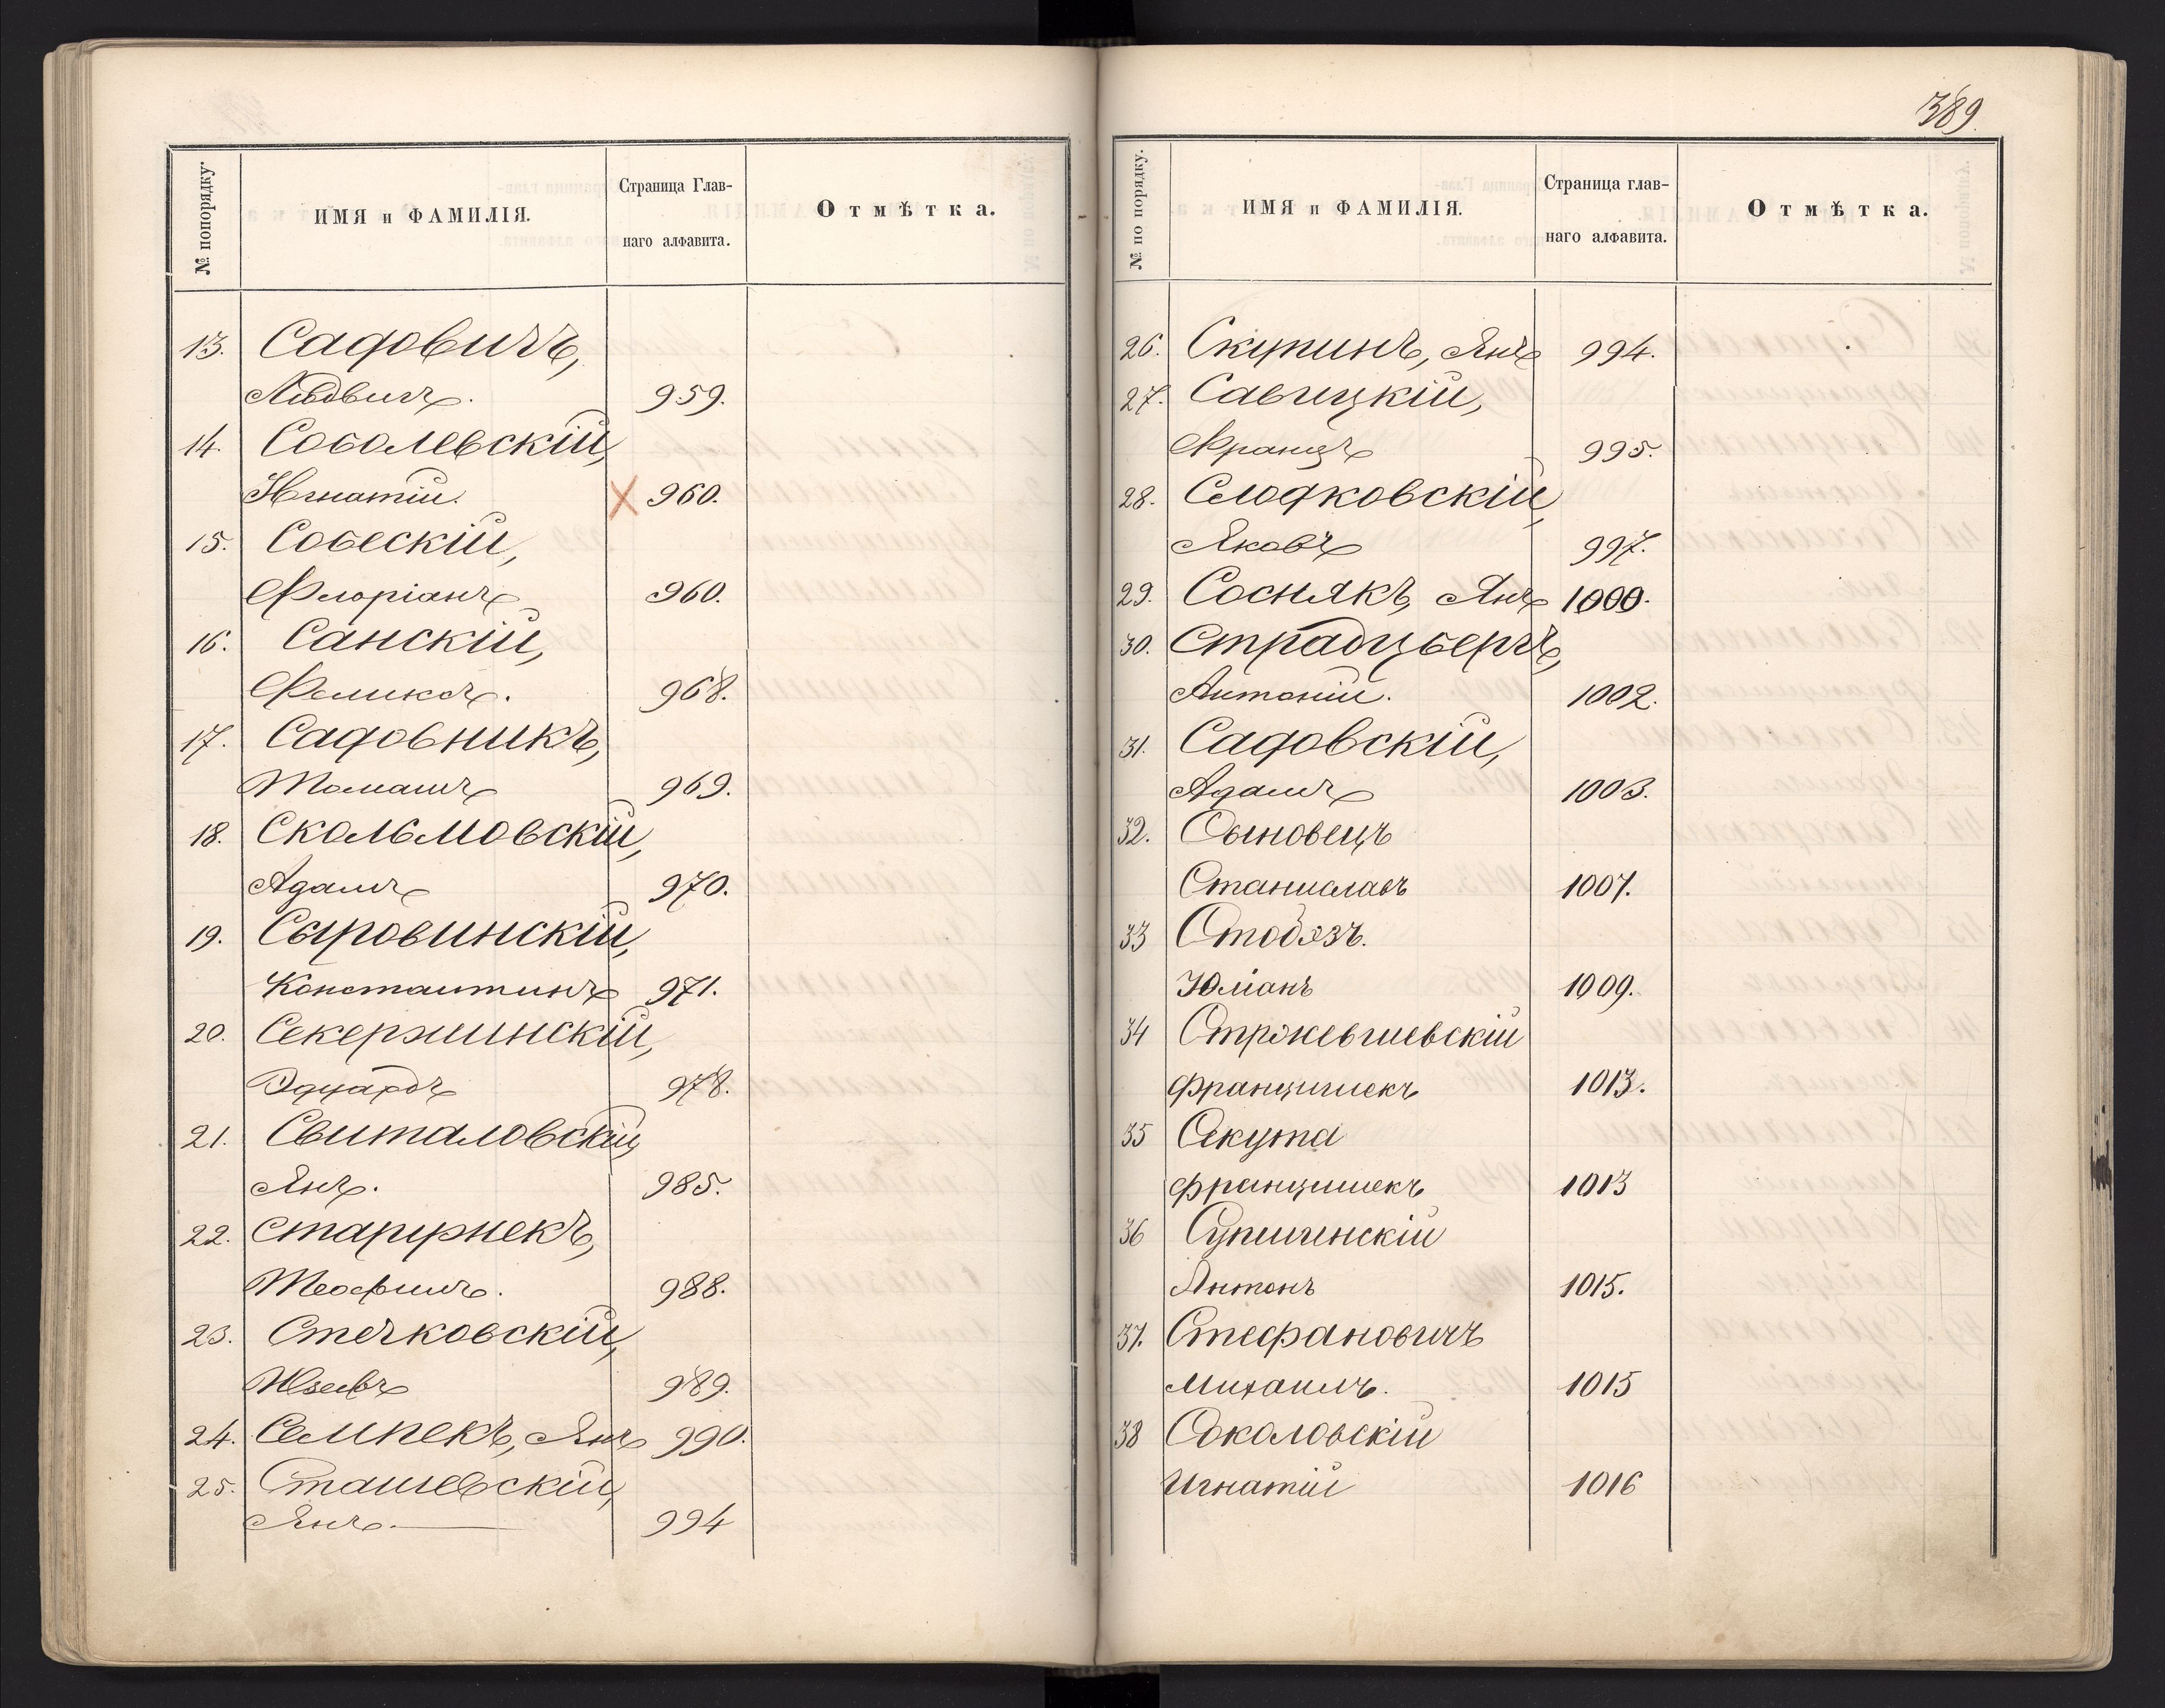 № попорядку.
ИМЯ и ФАМИЛІЯ.
Страница Глав-
наго алфавита.
Отмѣтка.
13. Садовичъ,
Людвигъ. 959.
14. Соболевскій,
Игнатій. 960.
15. Собескій,
Флоріанъ 960.
16. Санскій,
Феликсъ. 968.
17. Садовникъ,
Томашъ 969.
18. Скольмовскій,
Адамъ 970.
19. Сыровинскій,
Константинъ 971.
20. Секержинскій,
Эдуардъ 978.
21. Свиталовскій,
Янъ. 985.
22.
Теофилъ. 988.
23. Стечковскій,
Юзефъ 989.
24. Семпекъ, Янъ 990.
25. Сташевскій,
Янъ. 994
389.
№ по порядку.
ИМЯ и ФАМИЛІЯ.
Страница глав-
наго алфавита.
Отмѣтка.
26. Скупинъ, Янъ 994.
27. Савицкій,
Францъ 995.
28. Слодковскій,
Яковъ 997.
29. Соснякъ, Янъ 1000.
30. Страдцбергъ,
Антоній. 1002.
31. Садовскій,
Адамъ 1003.
32. Сыновецъ
Станиславъ 1007.
33
Юліанъ 1009.
34
Францишекъ 1013.
35 Секута
Францишекъ 1013
36
Антонъ 1015.
37. Стефановичъ
Михаилъ. 1015
38 Соколовскій
Игнатій 1016